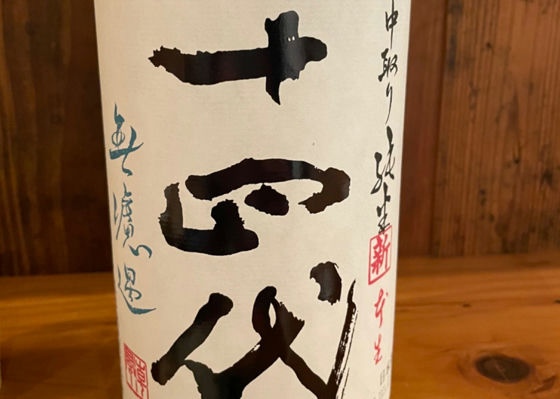 中取り純米
新
本生
十四代
無濾過